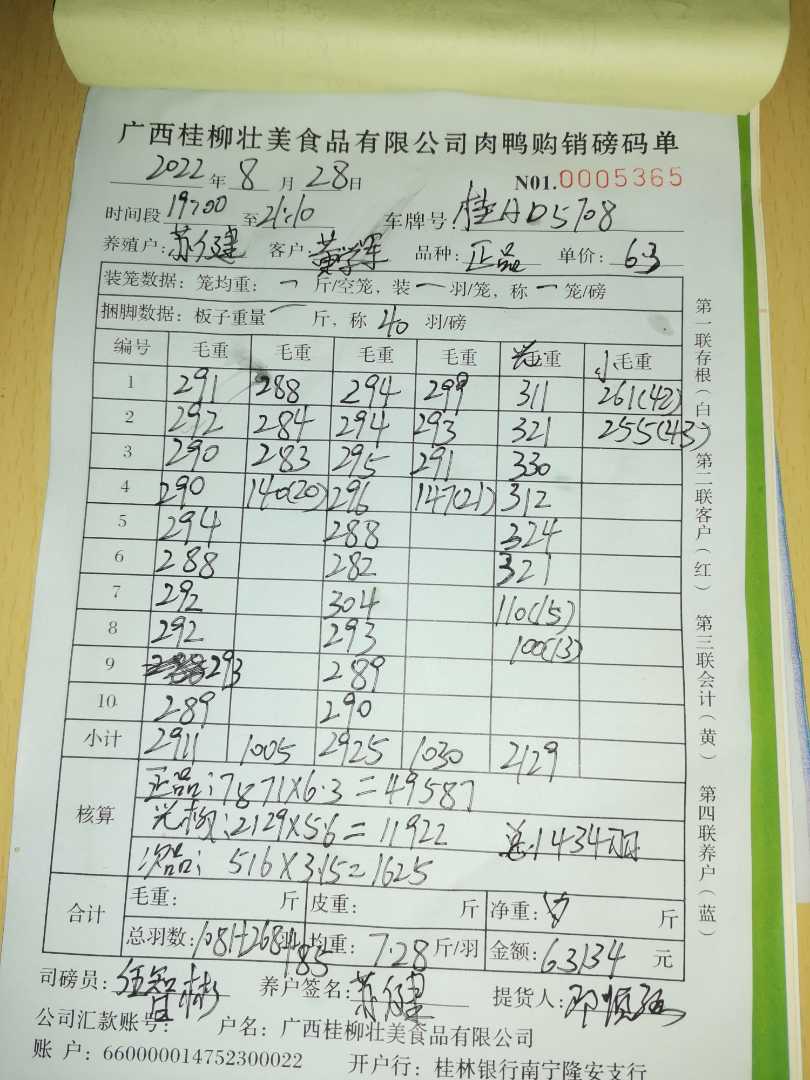 广西桂柳壮美食品有限公司肉鸭购销磅码单
2022 年 8 月 28 日 N01.0005365
时间段 19:00 至 21:10 车牌号: 桂AD5708
养殖户: 苏健 客户: 黄学军 品种: 正品 单价: 6.3
装笼数据: 笼均重: 一 斤/空笼, 装 一 羽/笼, 称 一 笼/磅
捆脚数据: 板子重量 一 斤, 称 40 羽/磅
编号 毛重 毛重 毛重 毛重 重 小毛重
1 291 288 294 299 311 261(42)
2 292 284 294 293 321 255(43)
3 290 283 295 291 330
4 290 140(20) 296 147(21) 312
5 294 288 324
6 288 282 321
7 292 304 110(15)
8 292 293 100(13)
9 293 289
10 289 290
小计 2911 1005 2925 1030 2129
核算
正品: 7871×6.3=49587
2129×5.6=11922 总: 1434羽
次品: 516×3.15=1625
合计 毛重: 斤 皮重: 斤 净重: 斤
总羽数: 1081+268+85 羽 均重: 7.28 斤/羽 金额: 63134 元
司磅员: 养户签名: 苏健 提货人:
公司汇款账号: 户名: 广西桂柳壮美食品有限公司
账 户: 660000014752300022 开户行: 桂林银行南宁隆安支行
第一联存根(白) 第二联客户(红) 第三联会计(黄) 第四联养户(蓝)